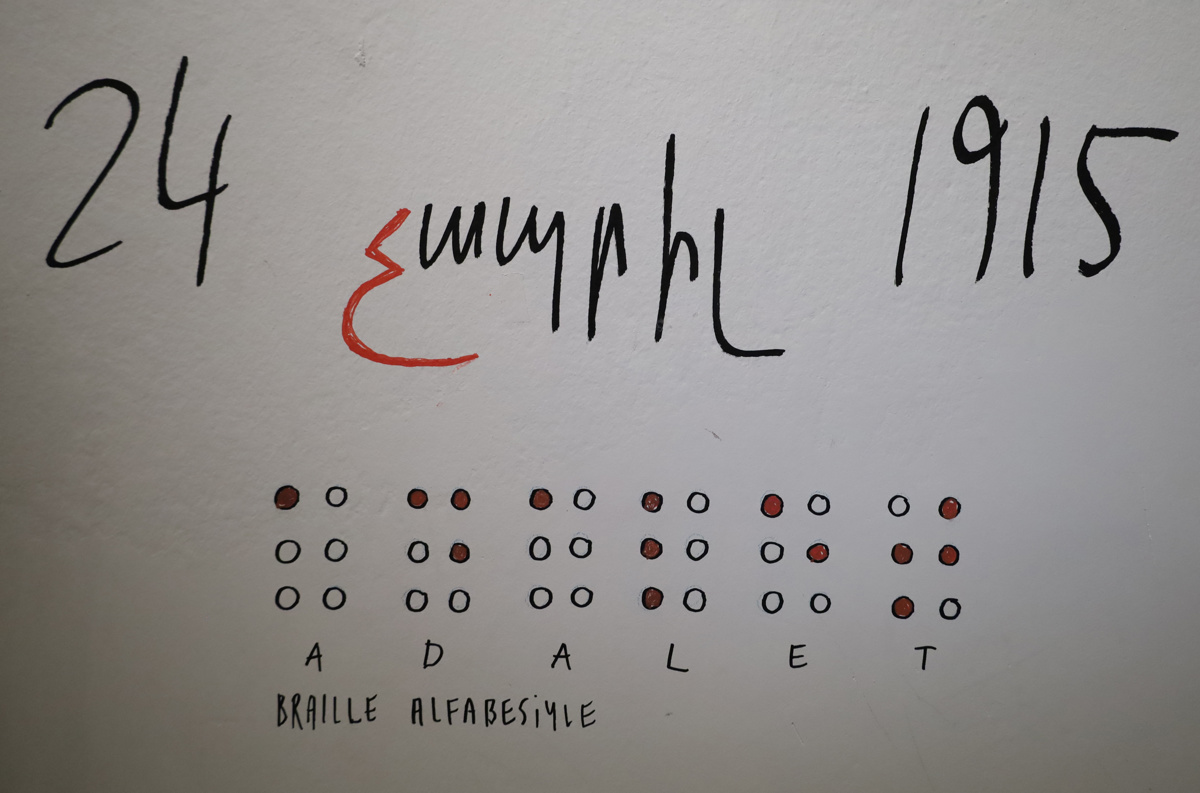 24 عապրիլ 1915
⠁ ⠙ ⠁ ⠇ ⠑ ⠞
A D A L E T
BRAILLE ALFABESiYLE